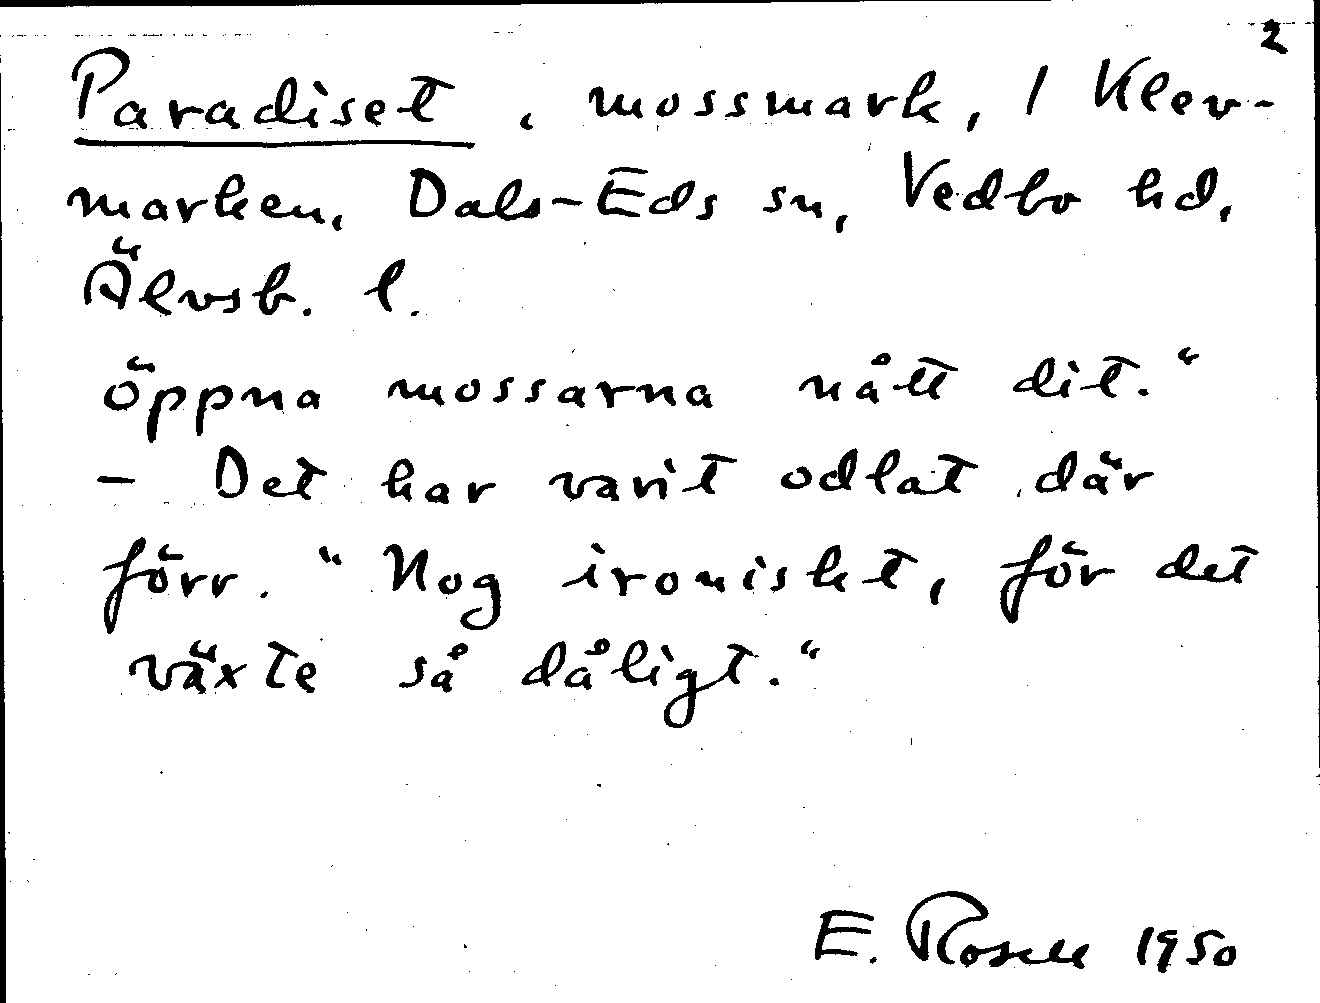 2
Paradiset, mossmark, / Klev-
marken, Dals-Eds sn, Vedbo hd,
Älvsb. l.
öppna mossarna nått dit."
- Det har varit odlat där
förr. "Nog ironiskt, för det
växte så dåligt."
E. Rosell 1950